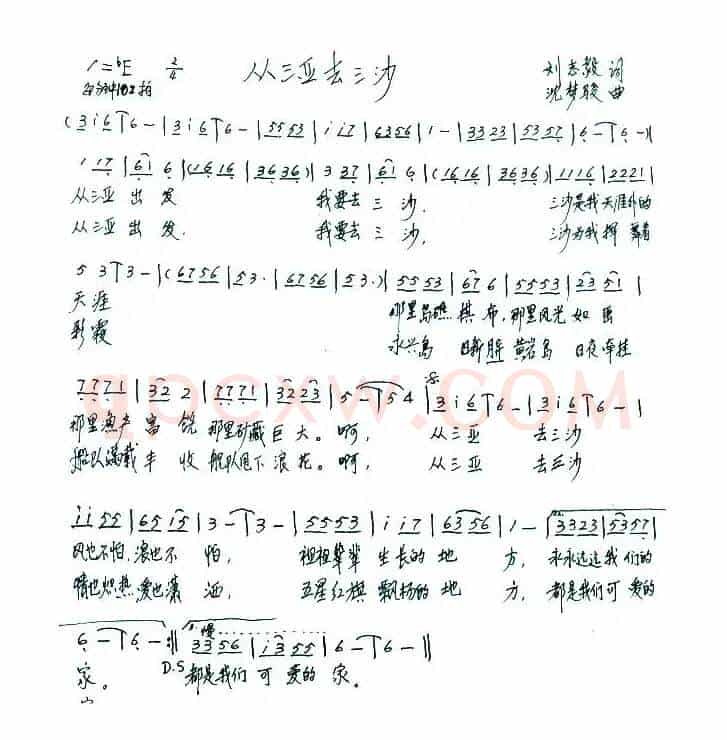 1=♭E 2/4 从三亚去三沙 刘志毅 词
每分钟102拍 沈梦骏 曲
(3 i 6 | 6 – | 3 i 6 | 6 – | 5553 | i i7 | 6356 | 1 – | 3323 | 5357 | 6 – | 6 – )|
1 17 | 61 6 | (1616 | 3636) | 3 37 | 61 6 | (1616 | 3636) | 1116 | 2221 |
从三亚 出 发 我要去 三 沙, 三沙是我天涯外的
从三亚 出 发, 我要去 三 沙, 三沙为我挥 舞着
5 3 | 3 – | (6756 | 53· | 6756 | 53·) | 5553 | 676 | 5553 | 23 51 |
天涯 那里岛礁 棋 布, 那里风光 如 画
彩霞 永兴岛 日新 黄岩岛 日夜牵挂
7771 | 32 2 | 7771 | 3223 | 5 – | 54 | 3 i 6 | 6 – | 3 i 6 | 6 – |
那里鱼产 富 饶 那里矿藏 巨 大。啊, 从三亚 去三沙
船队满载 丰 收 舰队甩下 浪 花。啊, 从三亚 去三沙
i i 55 | 65 15 | 3 – | 3 – | 5553 | i i7 | 6356 | 1 – | 3323 | 5357 |
风也不怕, 浪也不 怕, 祖祖辈辈 生长的 地 方, 永永远远我们的
情也炽热 爱也潇 洒, 五星红旗 飘扬的 地 方, 都是我们可 爱的
6 – | 6 – :|| 慢 3356 | i 355 | 6 – | 6 – ||
家。 D.S 都是我们 可 爱的 家。
qpcxw.COM